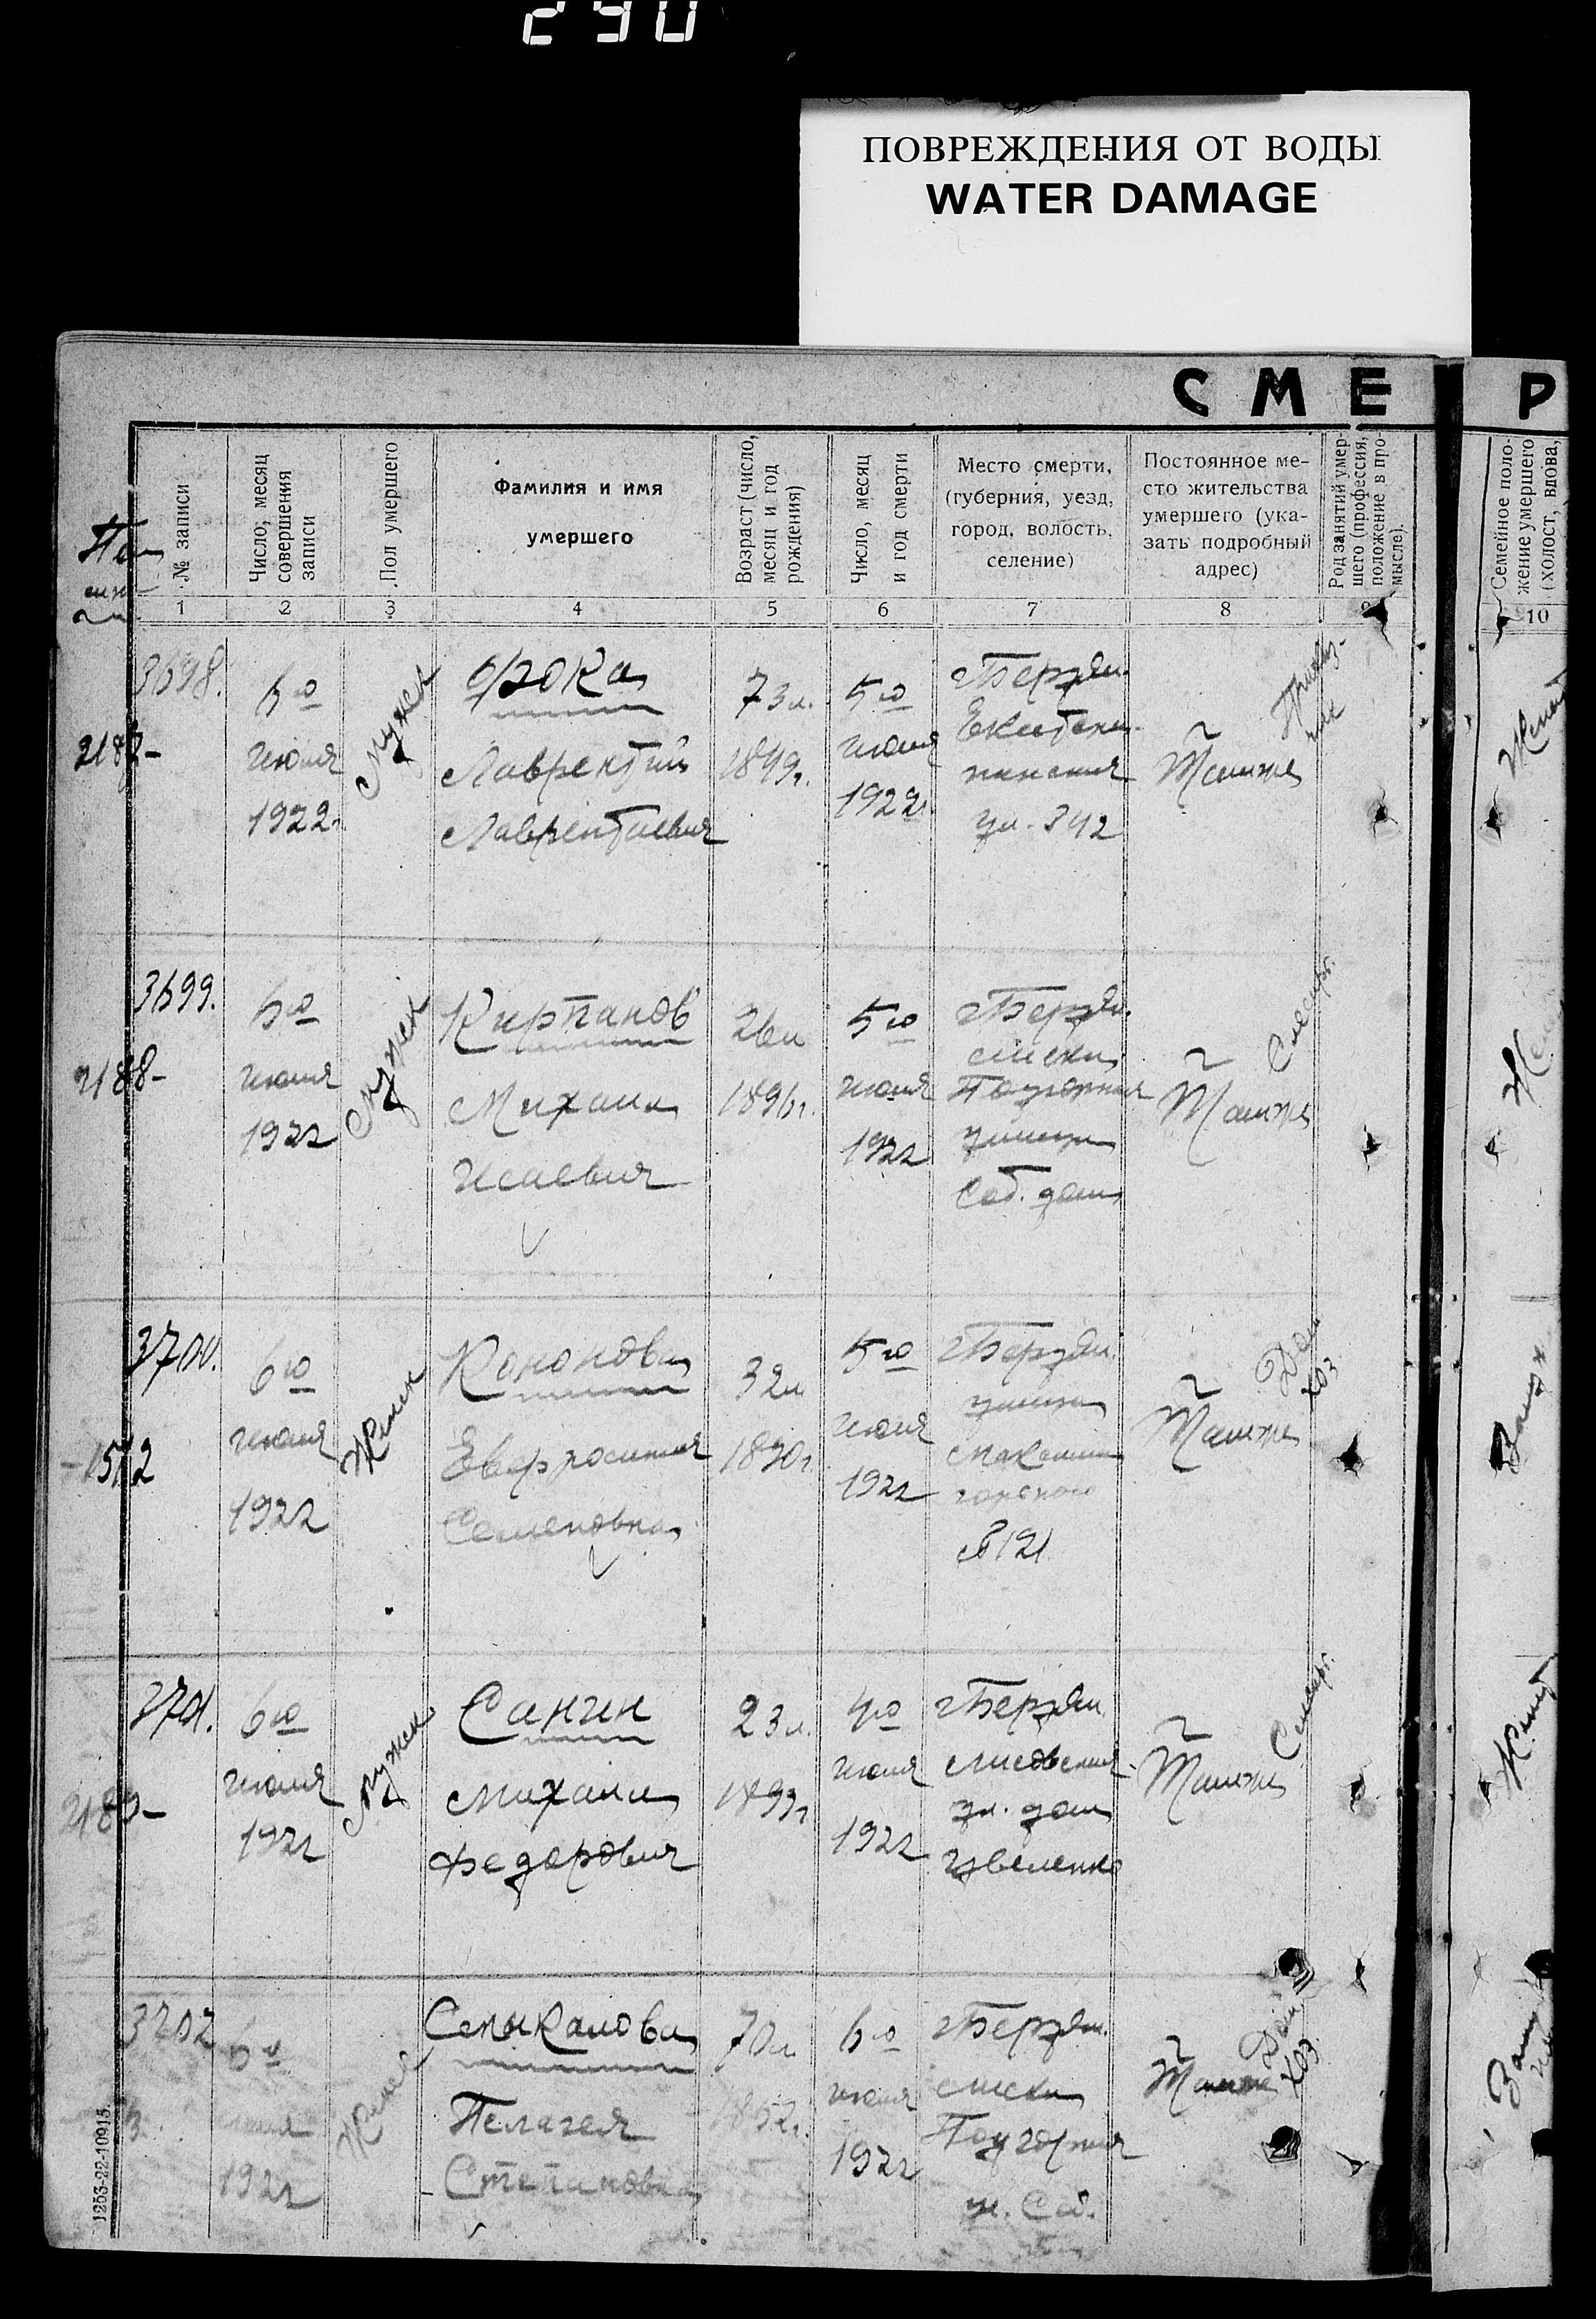 290
ПОВРЕЖДЕНИЯ ОТ ВОДЫ
WATER DAMAGE
СМЕ Р
№ записи
Число, месяц
совершения
записи
Пол умершего
Фамилия и имя
умершего
Возраст (число,
месяц и год
рождения)
Число, месяц
и год смерти
Место смерти,
(губерния, уезд,
город, волость,
селение)
Постоянное ме-
сто жительства
умершего (ука-
зать подробный
адрес)
Род занятий умер-
шего (профессия,
положение в про-
мысле).
Семейное поло-
жение умершего
(холост, вдова,
1 2 3 4 5 6 7 8 9 10
3698.
2187-
6го
июля
1922г.
Мужск
Фока
Лаврентий
Лаврентиевич
73л.
1849г.
5го
июля
1922г.
г Бердян.
ул. 342
Тамже
Женат
3699.
2188-
6го
июля
1922
Мужск
Кирпанов
Михаил
Исаевич
26л
1896г.
5го
июля
1922
г Бердян.
Подгорная
улица
Соб. дом
Тамже
Слесарь.
3700.
1512
6го
июля
1922
Женск
Кононова
Евфросиния
Семеновна
32л
1890г.
5го
июля
1922
г Бердян.
улица
Максима
горького
№ 121
Тамже
Дом
хоз
Замуж
3701.
2189-
6го
июля
1922
Мужск
Санин
Михаил
Федорович
23л.
1899г
4го
июля
1922
г Бердян.
ул. дом
Тамже
Слесарь.
Женат
3702
6го
1922
Женск
Смыкалова
Пелагея
Степановна
70л
1852г.
6го
июля
1922
г Бердян.
Подгорная
ул. Соб.
Тамже
Дом
хоз
1253-22-10915.